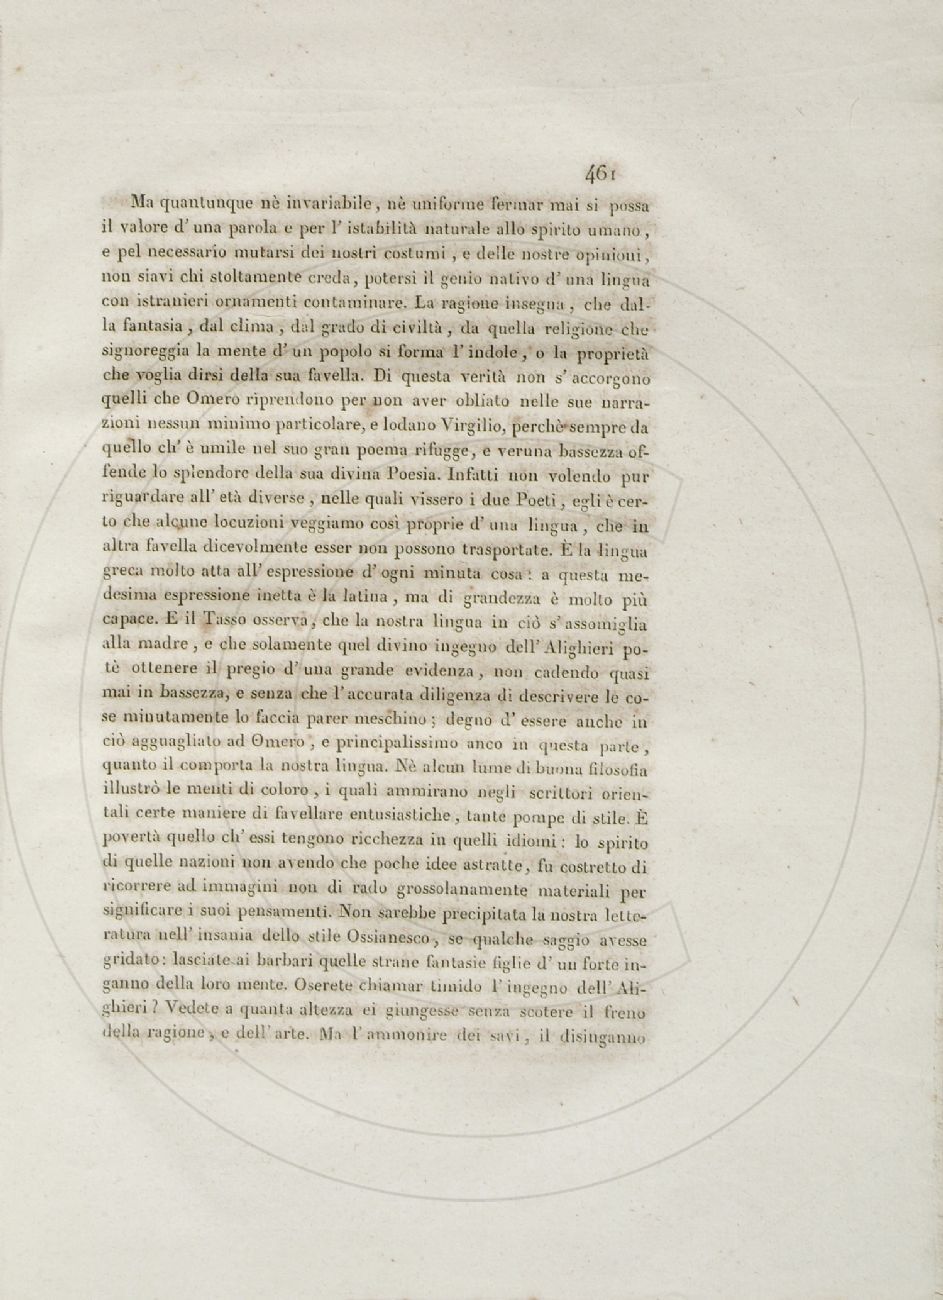 461
Ma quantunque nè invariabile, nè uniforme fermar mai si possa
il valore d' una parola e per l' istabilità naturale allo spirito umano,
e pel necessario mutarsi dei nostri costumi, e delle nostre opinioni,
non siavi chi stoltamente creda, potersi il genio nativo d' una lingua
con istranieri ornamenti contaminare. La ragione insegna, che dal-
la fantasia, dal clima, dal grado di civiltà, da quella religione che
signoreggia la mente d' un popolo si forma l' indole, o la proprietà
che voglia dirsi della sua favella. Di questa verità non s' accorgono
quelli che Omero riprendono per non aver obliato nelle sue narra-
zioni nessun minimo particolare, e lodano Virgilio, perchè sempre da
quello ch' è umile nel suo gran poema rifugge, e veruna bassezza of-
fende lo splendore della sua divina Poesia. Infatti non volendo pur
riguardare all' età diverse, nelle quali vissero i due Poeti, egli è cer-
to che alcune locuzioni veggiamo così proprie d' una lingua, che in
altra favella dicevolmente esser non possono trasportate. È la lingua
greca molto atta all' espressione d' ogni minuta cosa: a questa me-
desima espressione inetta è la latina, ma di grandezza è molto più
capace. E il Tasso osserva, che la nostra lingua in ciò s' assomiglia
alla madre, e che solamente quel divino ingegno dell' Alighieri po-
tè ottenere il pregio d' una grande evidenza, non cadendo quasi
mai in bassezza, e senza che l' accurata diligenza di descrivere le co-
se minutamente lo faccia parer meschino; degno d' essere anche in
ciò agguagliato ad Omero, e principalissimo anco in questa parte,
quanto il comporta la nostra lingua. Nè alcun lume di buona filosofia
illustrò le menti di coloro, i quali ammirano negli scrittori orien-
tali certe maniere di favellare entusiastiche, tante pompe di stile. È
povertà quello ch' essi tengono ricchezza in quelli idiomi: lo spirito
di quelle nazioni non avendo che poche idee astratte, fu costretto di
ricorrere ad immagini non di rado grossolanamente materiali per
significare i suoi pensamenti. Non sarebbe precipitata la nostra lette-
ratura nell' insania dello stile Ossianesco, se qualche saggio avesse
gridato: lasciate ai barbari quelle strane fantasie figlie d' un forte in-
ganno della loro mente. Oserete chiamar timido l' ingegno dell' Ali-
ghieri? Vedete a quanta altezza ei giungesse senza scotere il freno
della ragione, e dell' arte. Ma l' ammonire dei savi, il disinganno